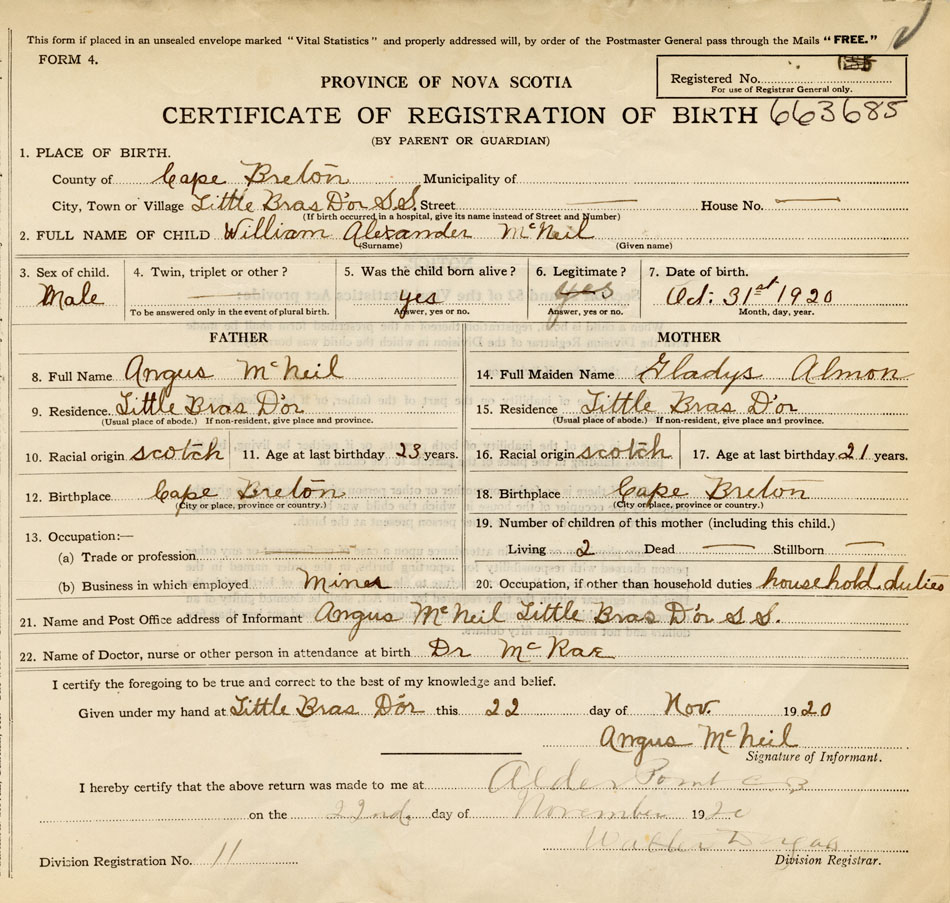 This form if placed in an unsealed envelope marked "Vital Statistics" and properly addressed will, by order of the Postmaster General pass through the Mails "FREE."
FORM 4.
Registered No.
For use of Registrar General only.
PROVINCE OF NOVA SCOTIA
CERTIFICATE OF REGISTRATION OF BIRTH 663685
(BY PARENT OR GUARDIAN)
1. PLACE OF BIRTH.
County of Cape Breton Municipality of
City, Town or Village Little Bras D'or S.S. Street — House No. —
(If birth occurred in a hospital, give its name instead of Street and Number)
2. FULL NAME OF CHILD William Alexander McNeil
(Surname) (Given name)
3. Sex of child. 4. Twin, triplet or other? 5. Was the child born alive? 6. Legitimate? 7. Date of birth.
Male — yes yes Oct. 31st 1920
To be answered only in the event of plural birth. Answer, yes or no. Answer, yes or no. Month, day, year.
FATHER MOTHER
8. Full Name Angus McNeil 14. Full Maiden Name Gladys Almon
9. Residence. Little Bras D'or 15. Residence Little Bras D'or
(Usual place of abode.) If non-resident, give place and province. (Usual place of abode.) If non-resident, give place and province.
10. Racial origin scotch 11. Age at last birthday 23 years. 16. Racial origin scotch 17. Age at last birthday 21 years.
12. Birthplace Cape Breton 18. Birthplace Cape Breton
(City or place, province or country.) (City or place, province or country.)
13. Occupation:— 19. Number of children of this mother (including this child.)
(a) Trade or profession — Living 2 Dead — Stillborn —
(b) Business in which employed Miner 20. Occupation, if other than household duties household duties
21. Name and Post Office address of Informant Angus McNeil Little Bras D'or S S.
22. Name of Doctor, nurse or other person in attendance at birth Dr McRae
I certify the foregoing to be true and correct to the best of my knowledge and belief.
Given under my hand at Little Bras D'or this 22 day of Nov. 1920
Angus McNeil
Signature of Informant.
I hereby certify that the above return was made to me at Alder Point C B
on the 22nd. day of November 1920
Walter
Division Registration No. 11 Division Registrar.